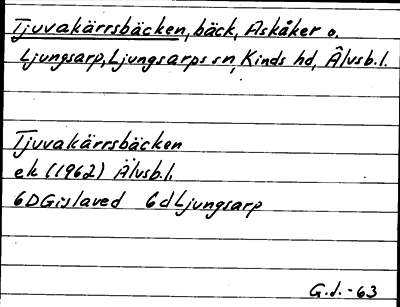 Tjuvakärrsbäcken, bäck, Askåker o.
Ljungsarp, Ljungsarps sn, Kinds hd, Älvsb.l.
Tjuvakärrsbäcken
ek (1962) Älvsb.l.
6D Gislaved 6d Ljungsarp
G.J.-63